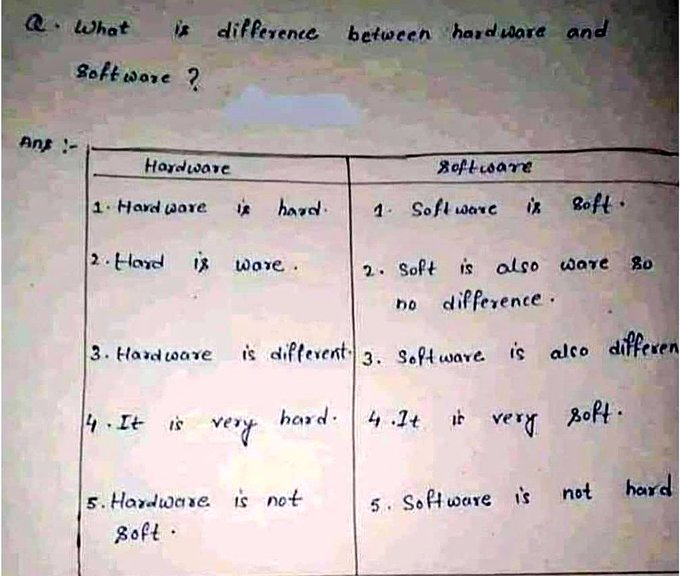 Q. What is difference between hardware and
Software ?
Ans :-
Hardware Software
1. Hardware is hard. 1. Software is Soft.
2. Hard is ware. 2. Soft is also ware so
no difference.
3. Hardware is different. 3. Software is also differen
4. It is very hard. 4. It is very soft.
5. Hardware is not 5. Software is not hard
Soft.